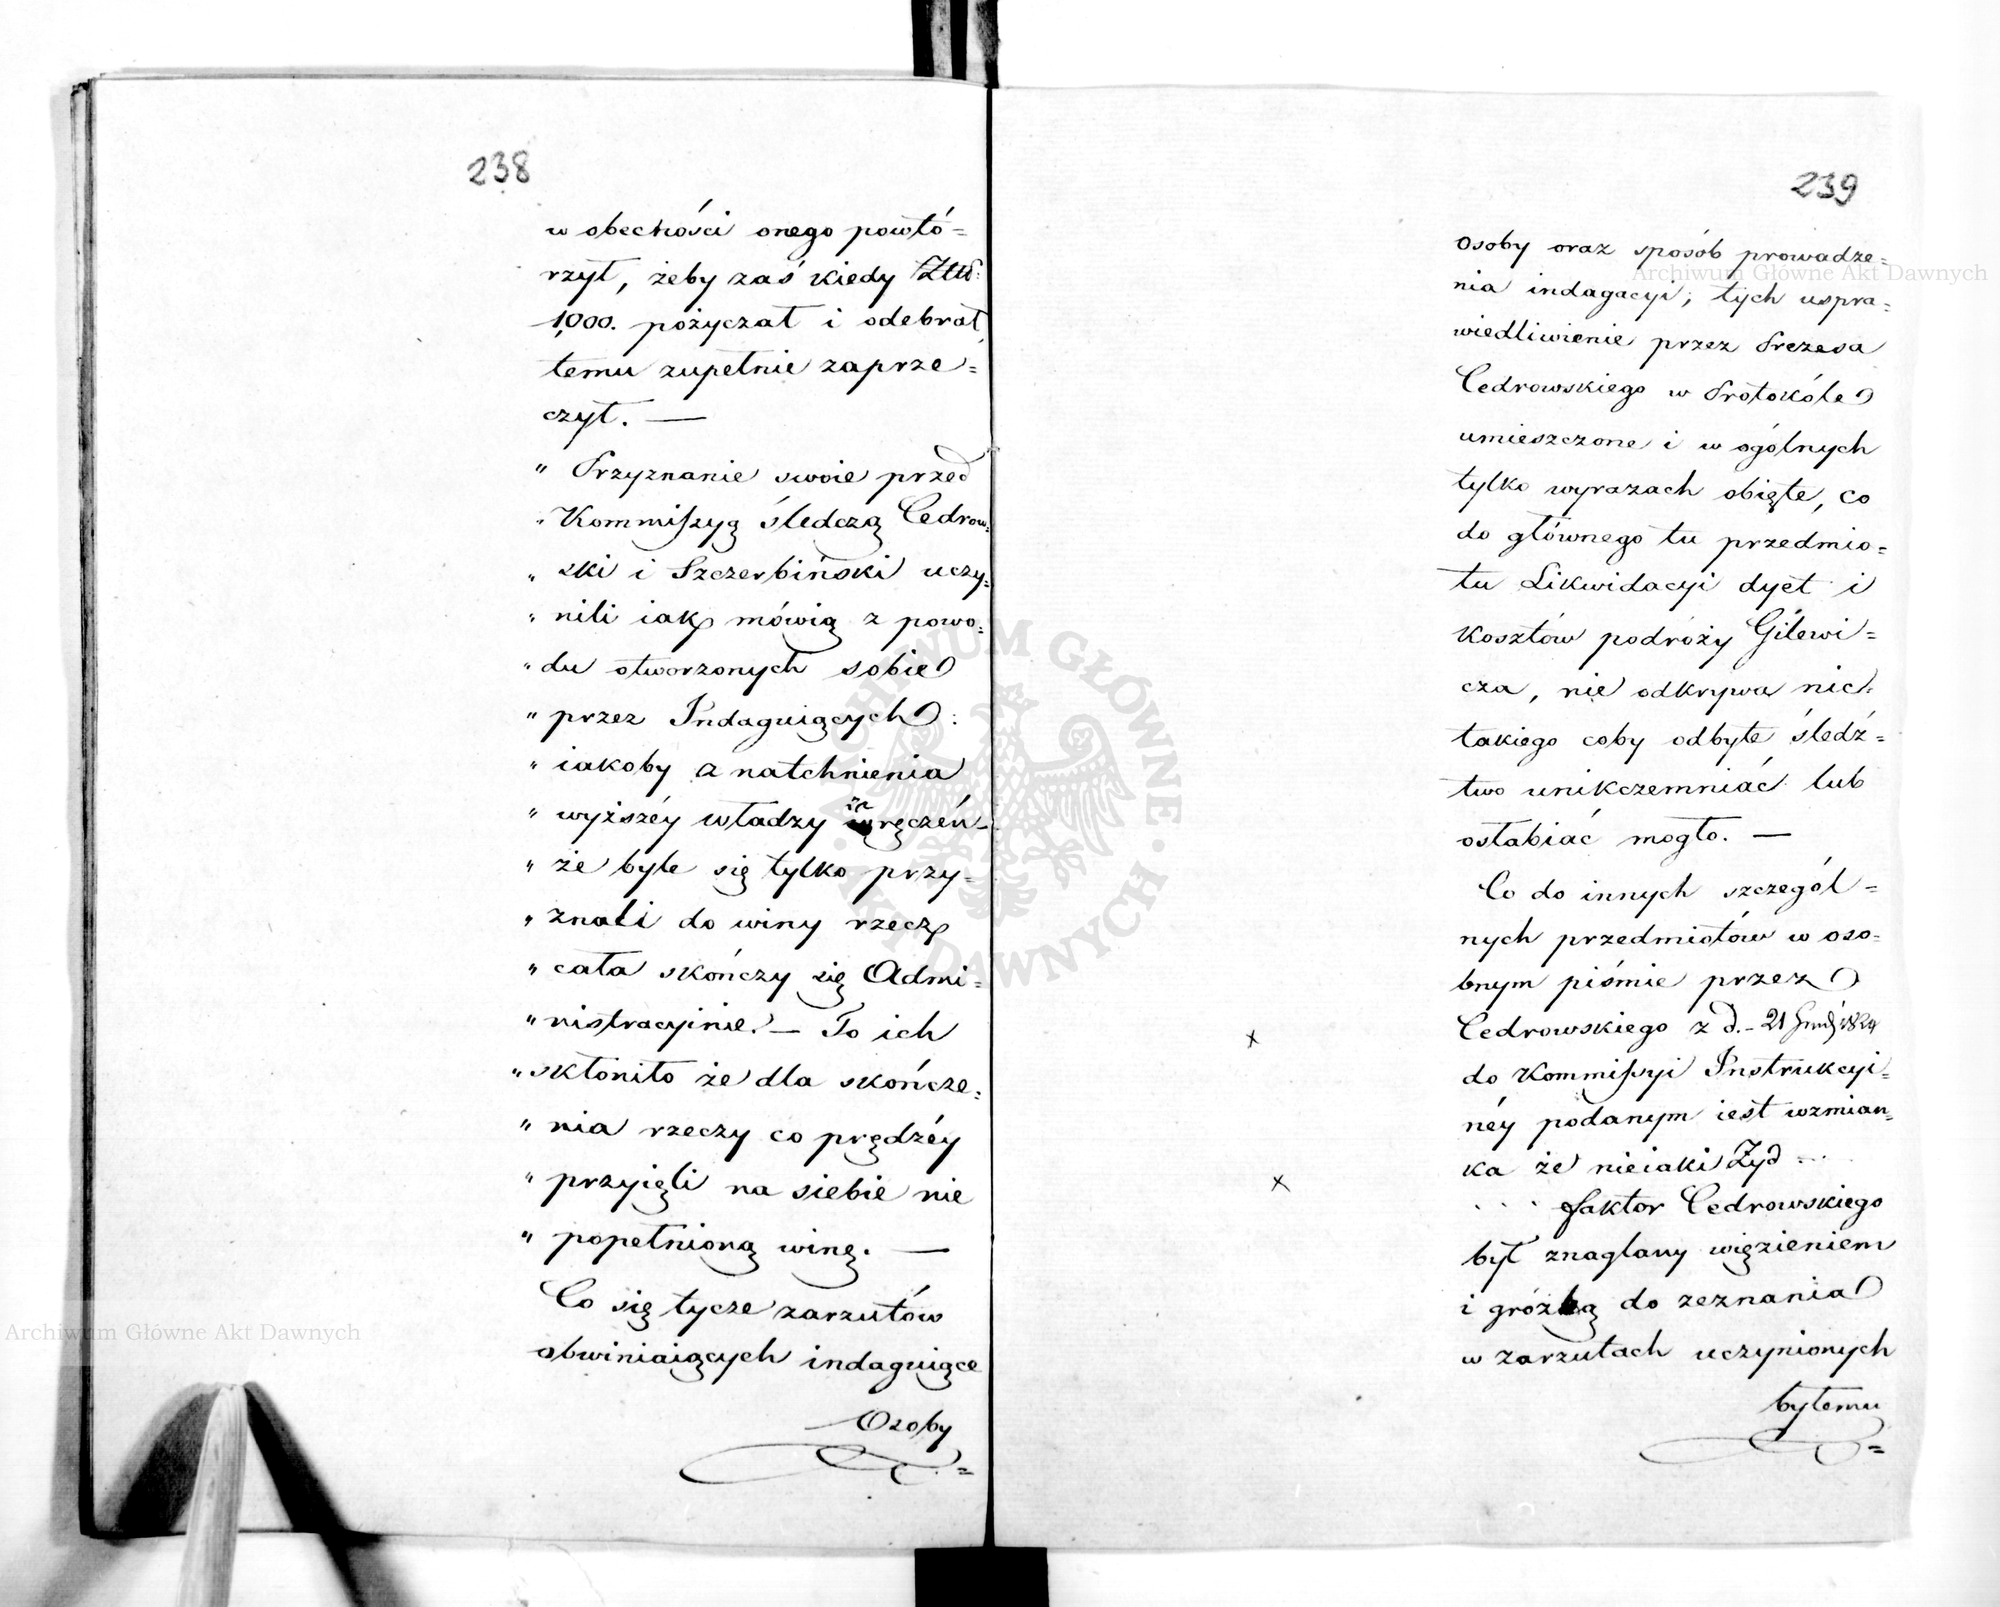 238
w obecności onego powtó=
rzył, żeby zaś kiedy Złł:
1,000. pożyczał i odebrał
temu zupełnie zaprze=
czył. —
" Przyznanie swoie przed
" Kommißyą śledczą Cedrow=
" ski i Szczerbiński uczy=
" nili iak mówią z powo=
" du otworzonych sobie
" przez Indaguiących:
" iakoby z natchnienia
" wyższéy władzy zaręczeń
" że byle się tylko przy=
" znali do winy rzecz
" cała skończy się Admi=
" nistracyinie. — To ich
" skłoniło że dla skończe=
" nia rzeczy co prędzéy
" przyięli na siebie nie
" popełnioną winę. —
Co się tycze zarzutów
obwiniaiących indaguiące
Osoby
239
osoby oraz sposób prowadze=
nia indagacyi; tych uspra=
wiedliwienie przez Prezesa
Cedrowskiego w Protokóle
umieszczone i w ogólnych
tylko wyrazach obięte, co
do głównego tu przedmio=
tu Likwidacyi dyet i
kosztów podróży Gilewi=
cza, nie odkrywa nic
takiego coby odbyte śledz=
two unikczemniać lub
osłabiać mogło. —
Co do innych szczegól=
nych przedmiotów w oso=
bnym piśmie przez
Cedrowskiego z d. 21 Grud. 1824
do Kommißyi Instrukcyi=
néy podanym iest wzmian=
ka że nieiaki Żyd ...
... faktor Cedrowskiego
był znaglany więzieniem
i groźbą do zeznania
w zarzutach uczynionych
bytemu
Archiwum Główne Akt Dawnych
Archiwum Główne Akt Dawnych
ARCHIWUM GŁÓWNE · AKT DAWNYCH ·